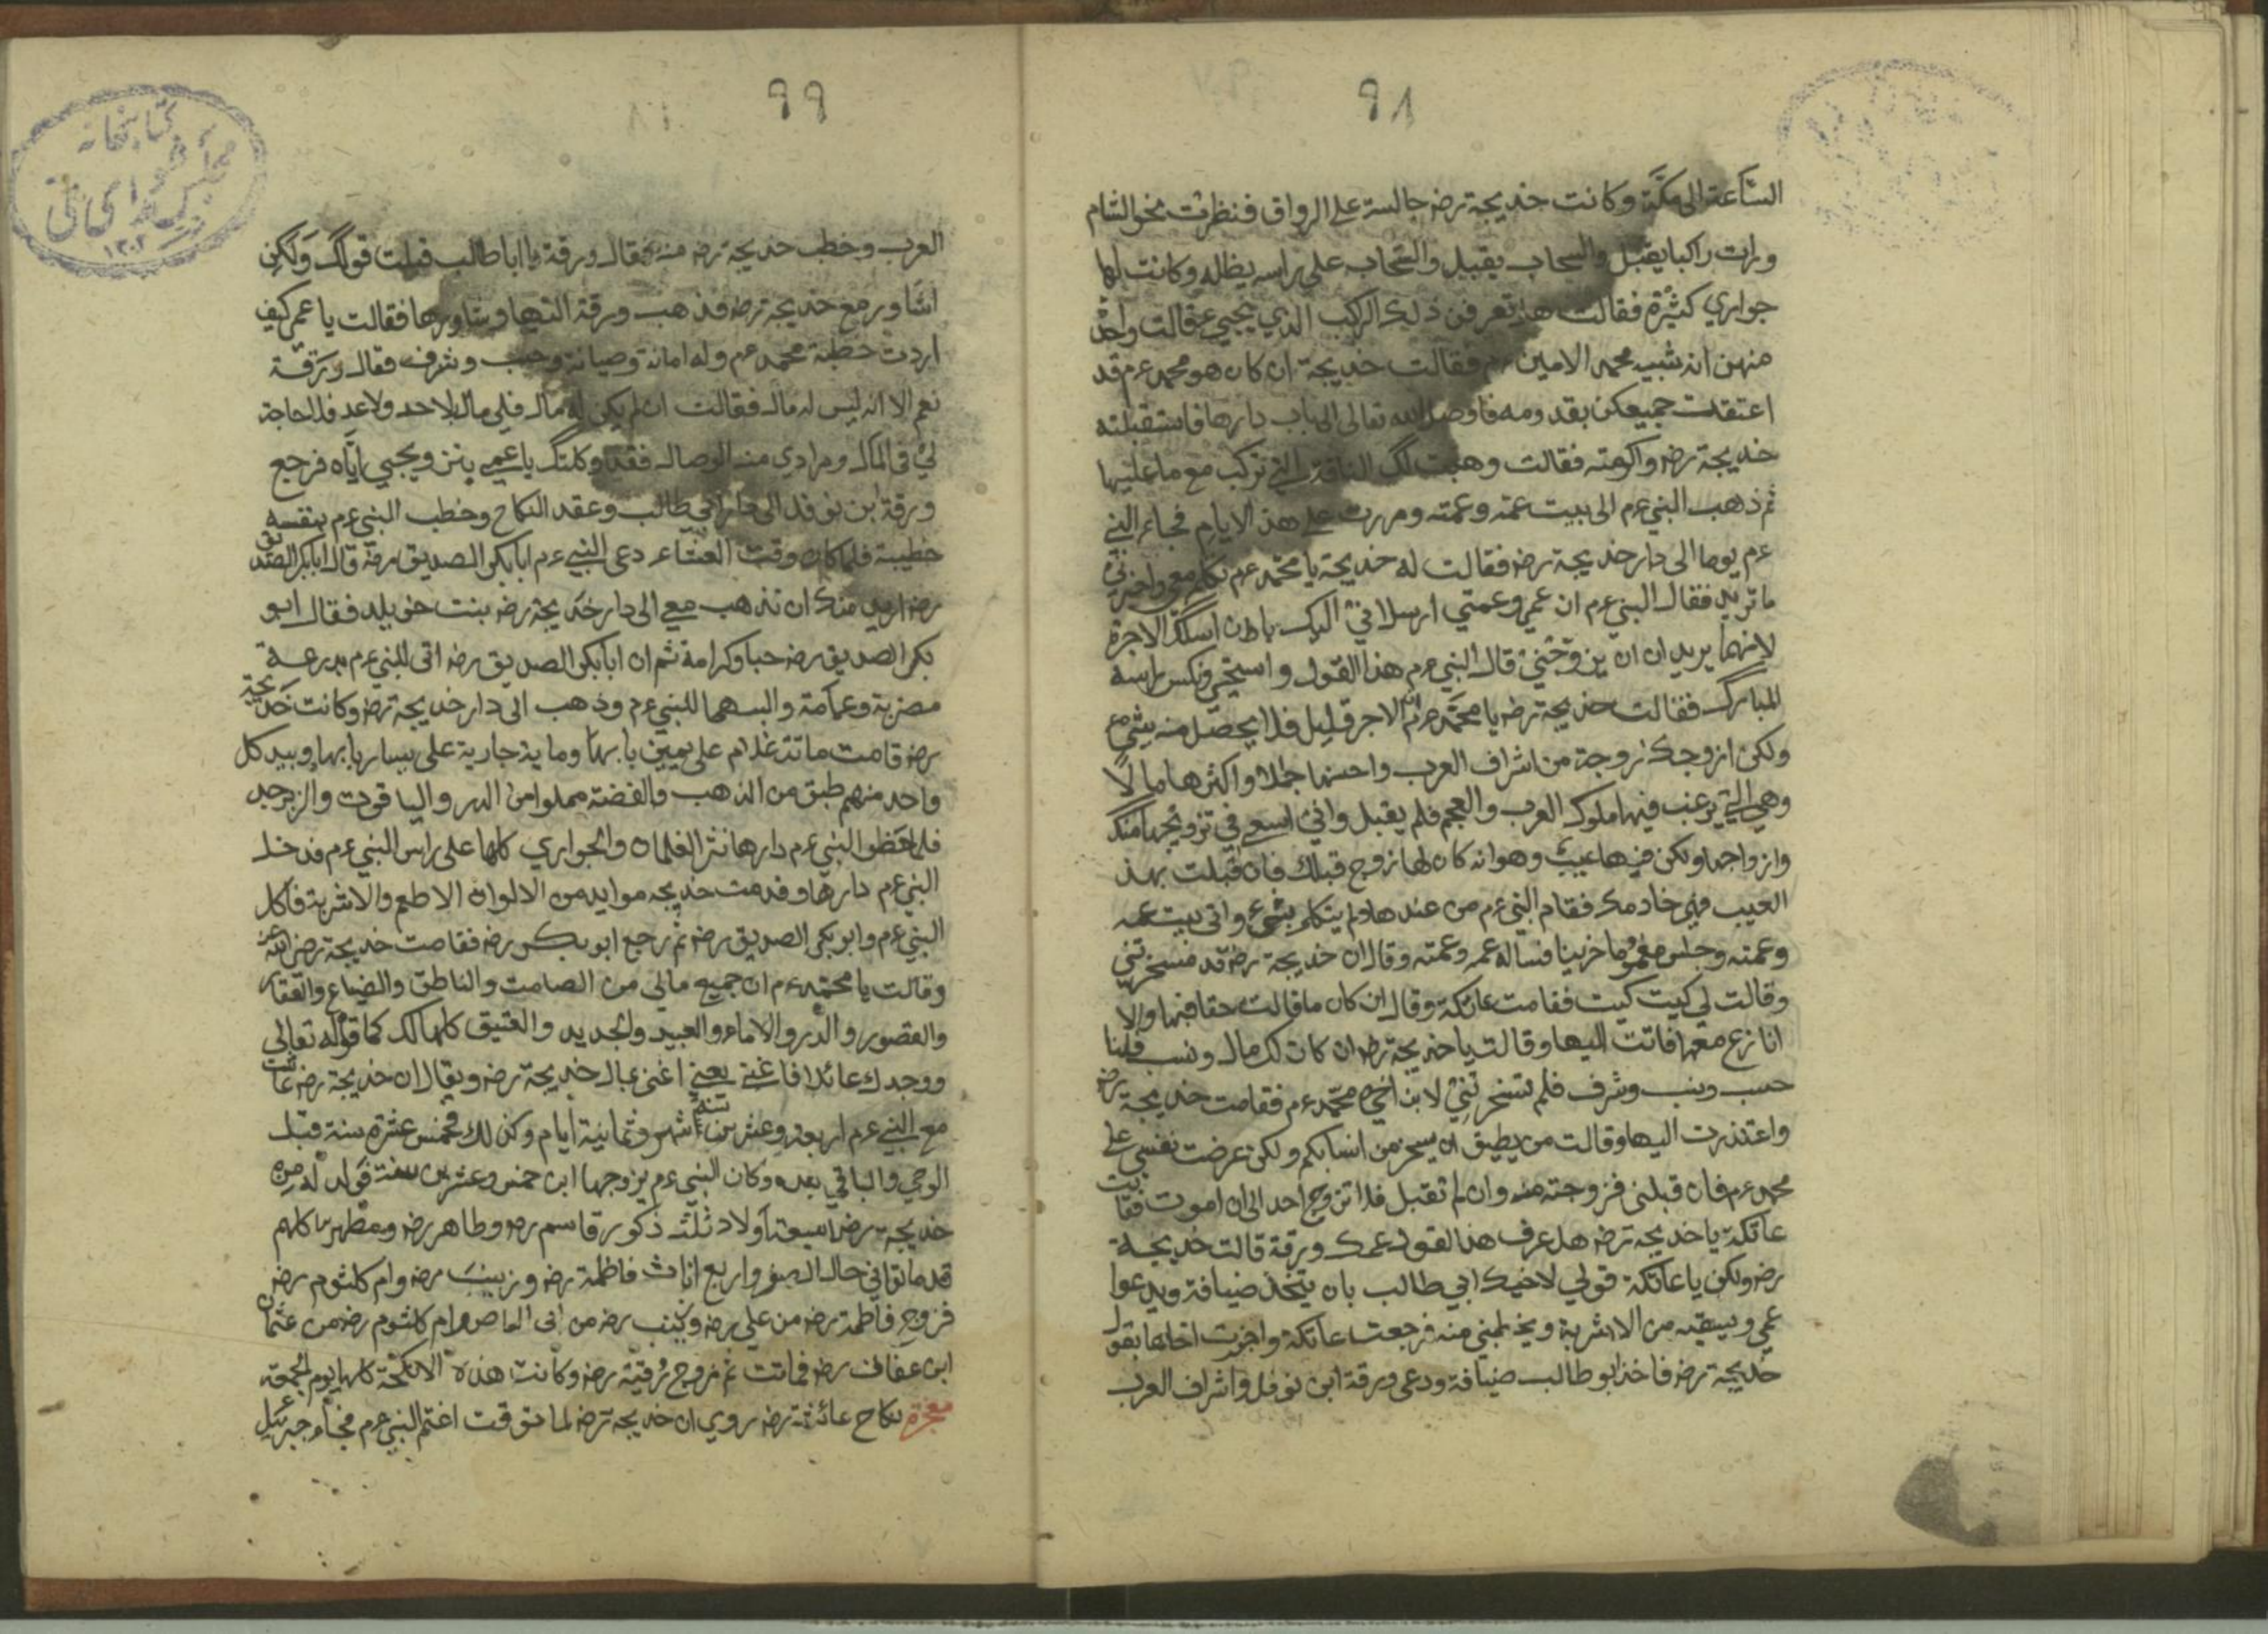 ٩٨
الساعة الى مكة وكانت خديجة رضه جالسة على الرواق فنظرت نحو الشام
ورات راكبا يقبل والسحاب يقبل والسحاب على راسه يظله وكانت لها
جواري كثيرة فقالت هل تعرفن ذلك الراكب الذي يجيئ قالت واحدة
منهن انه شبيه محمد الامين عم فقالت خديجة ان كان هو محمد عم قد
اعتقت جميعكن بقدومه فاوصل الله تعالى الى باب دارها فاستقبلته
خديجة رضه واكرمته فقالت وهبت لك الناقة التي تركب مع ما عليها
ثم ذهب النبي عم الى بيت عمه وعمته ومررت على هذه الايام فجاء النبي
عم يوما الى دار خديجة رضه فقالت له خديجة يا محمد عم تكلم معي واخبرني
ما تريد فقال النبي عم ان عمي وعمتي ارسلاني اليك بان اسئلك الاجرة
لانهما يريدان ان يزوجني قال النبي عم هذا القول واستحيى ونكس راسه
المبارك فقالت خديجة رضه يا محمد عم ان الاجر قليل فلا يحصل منه شيئ
ولكن ازوجك زوجة من اشراف العرب واحسنها جمالا واكثرها مالا
وهي التي يرغب فيها ملوك العرب والعجم فلم يقبل واني اسعى في تزويجها منك
وازواجها ولكن فيها عيب وهو انه كان لها زوج قبلك فان قبلت بهذ
العيب فهي خادمك فقام النبي عم من عندها ولم يتكلم بشيء واتى بيت عمه
وعمته وجلس مغموما حزينا فساله عمه وعمته وقال ان خديجة رضه قد تسخرتني
وقالت لي كيت كيت فقامت عاتكة وقال ان كان ما قالت حقا فبها والا
انازع معها فاتت اليها وقالت يا خديجة رضه ان كان لك مال ونسب فلنا
حسب ونسب وشرف فلم تسخرتني لابن اخي محمد عم فقامت خديجة رضه
واعتذرت اليها وقالت من يطيق ان يسخر من انسابكم ولكن عرضت نفسي على
محمد عم فان قبلنى فزوجته منه وان لم تقبل فلا اتزوج احد الى ان اموت فقالت
عاتكة يا خديجة رضه هل عرف هذا القول عمك ورقة قالت خديجة
رضه ولكن يا عاتكة قولي لاخيك ابي طالب بان يتخذ ضيافة ويدعوا
عمي ويسقيه من الاشربة ويخطبني منه فرجعت عاتكة واخبرت اخاها بقول
خديجة رضه فاخذ ابو طالب ضيافة ودعى ورقة ابن نوفل واشراف العرب
٩٩
العرب وخطب خديجة رضه منه فقال ورقة يا ابا طالب قبلت قولك ولكن
اشاور مع خديجة رضه فذهب ورقة اليها وشاورها فقالت يا عم كيف
اردت خطبة محمد عم وله امانة وصيانة وحسب وشرف فقال ورقة
نعم الا انه ليس له مال فقالت ان لم يكن له مال فلي مال بلا حد ولا عد فلا حاجة
لي في المال ومرادي منه الوصال فقد وكلتك يا عمي بزويجي اياه فرجع
ورقة ابن نوفل الى دار ابي طالب وعقد النكاح وخطب النبي عم بنفسه
خطيبة فلما كان وقت العشاء دعى النبي عم ابا بكر الصديق رضه قال ابا بكر الصديق
رضه اريد منك ان تذهب معي الى دار خديجة رضه بنت خويلد فقال ابو
بكر الصديق رضه حبا وكرامة ثم ان ابا بكر الصديق رضه اتى للنبي عم بدرعة
مصرية وعمامة والبسهما للنبي عم وذهب الى دار خديجة رضه وكانت خديجة
رضه قامت مائة غلام على يمين بابها وماية جارية على يسار بابها وبيد كل
واحد منهم طبق من الذهب والفضة مملوا من الدر والياقوت والزبرجد
فلما خطو النبي عم دارها نثر الغلمان والجواري كلها على راس النبي عم فدخل
النبي عم دارها وقدمت خديجه موايد من الالوان الاطعم والاشربة فاكل
النبي عم وابو بكر الصديق رضه ثم رجع ابو بكر رضه فقامت خديجة رضى الله عنه
وقالت يا محمد عم ان جميع مالي من الصامت والناطق والضياع والعقار
والقصور والدر والاماء والعبيد والجديد والعتيق كلها لك كما قوله تعالى
ووجدك عائلا فاغنى يعنى اغنى بمال خديجة رضه ويقال ان خديجة رضه عاشت
مع النبي عم اربعة وعشرين سنة اشهر وثمانية ايام وكذلك خمس عشرة سنة قبل
الوحي والباقي بعده وكان النبي عم يزوجها ابن خمس وعشرين سنة فولد له من
خديجة رضه سبعة اولاد ثلث ذكور قاسم رضه وطاهر رضه ومطهر كلهم
قد ماتوا في حال الصغر واربع اناث فاطمة رضه وزينب رضه وام كلثوم رضه
فزوج فاطمة رضه من علي رضه وزينب رضه من ابى العاص وام كلثوم رضه من عثمان
ابن عفان رضه فماتت ثم زوج رقية رضه وكانت هذه الانكحة كلها يوم الجمعة
معجزة نكاح عائشة رضه روي ان خديجة رضه لما توفت اغتم النبي عم فجاء جبرئيل
كتابخانه
مجلس شورای ملی
١٣٠٢